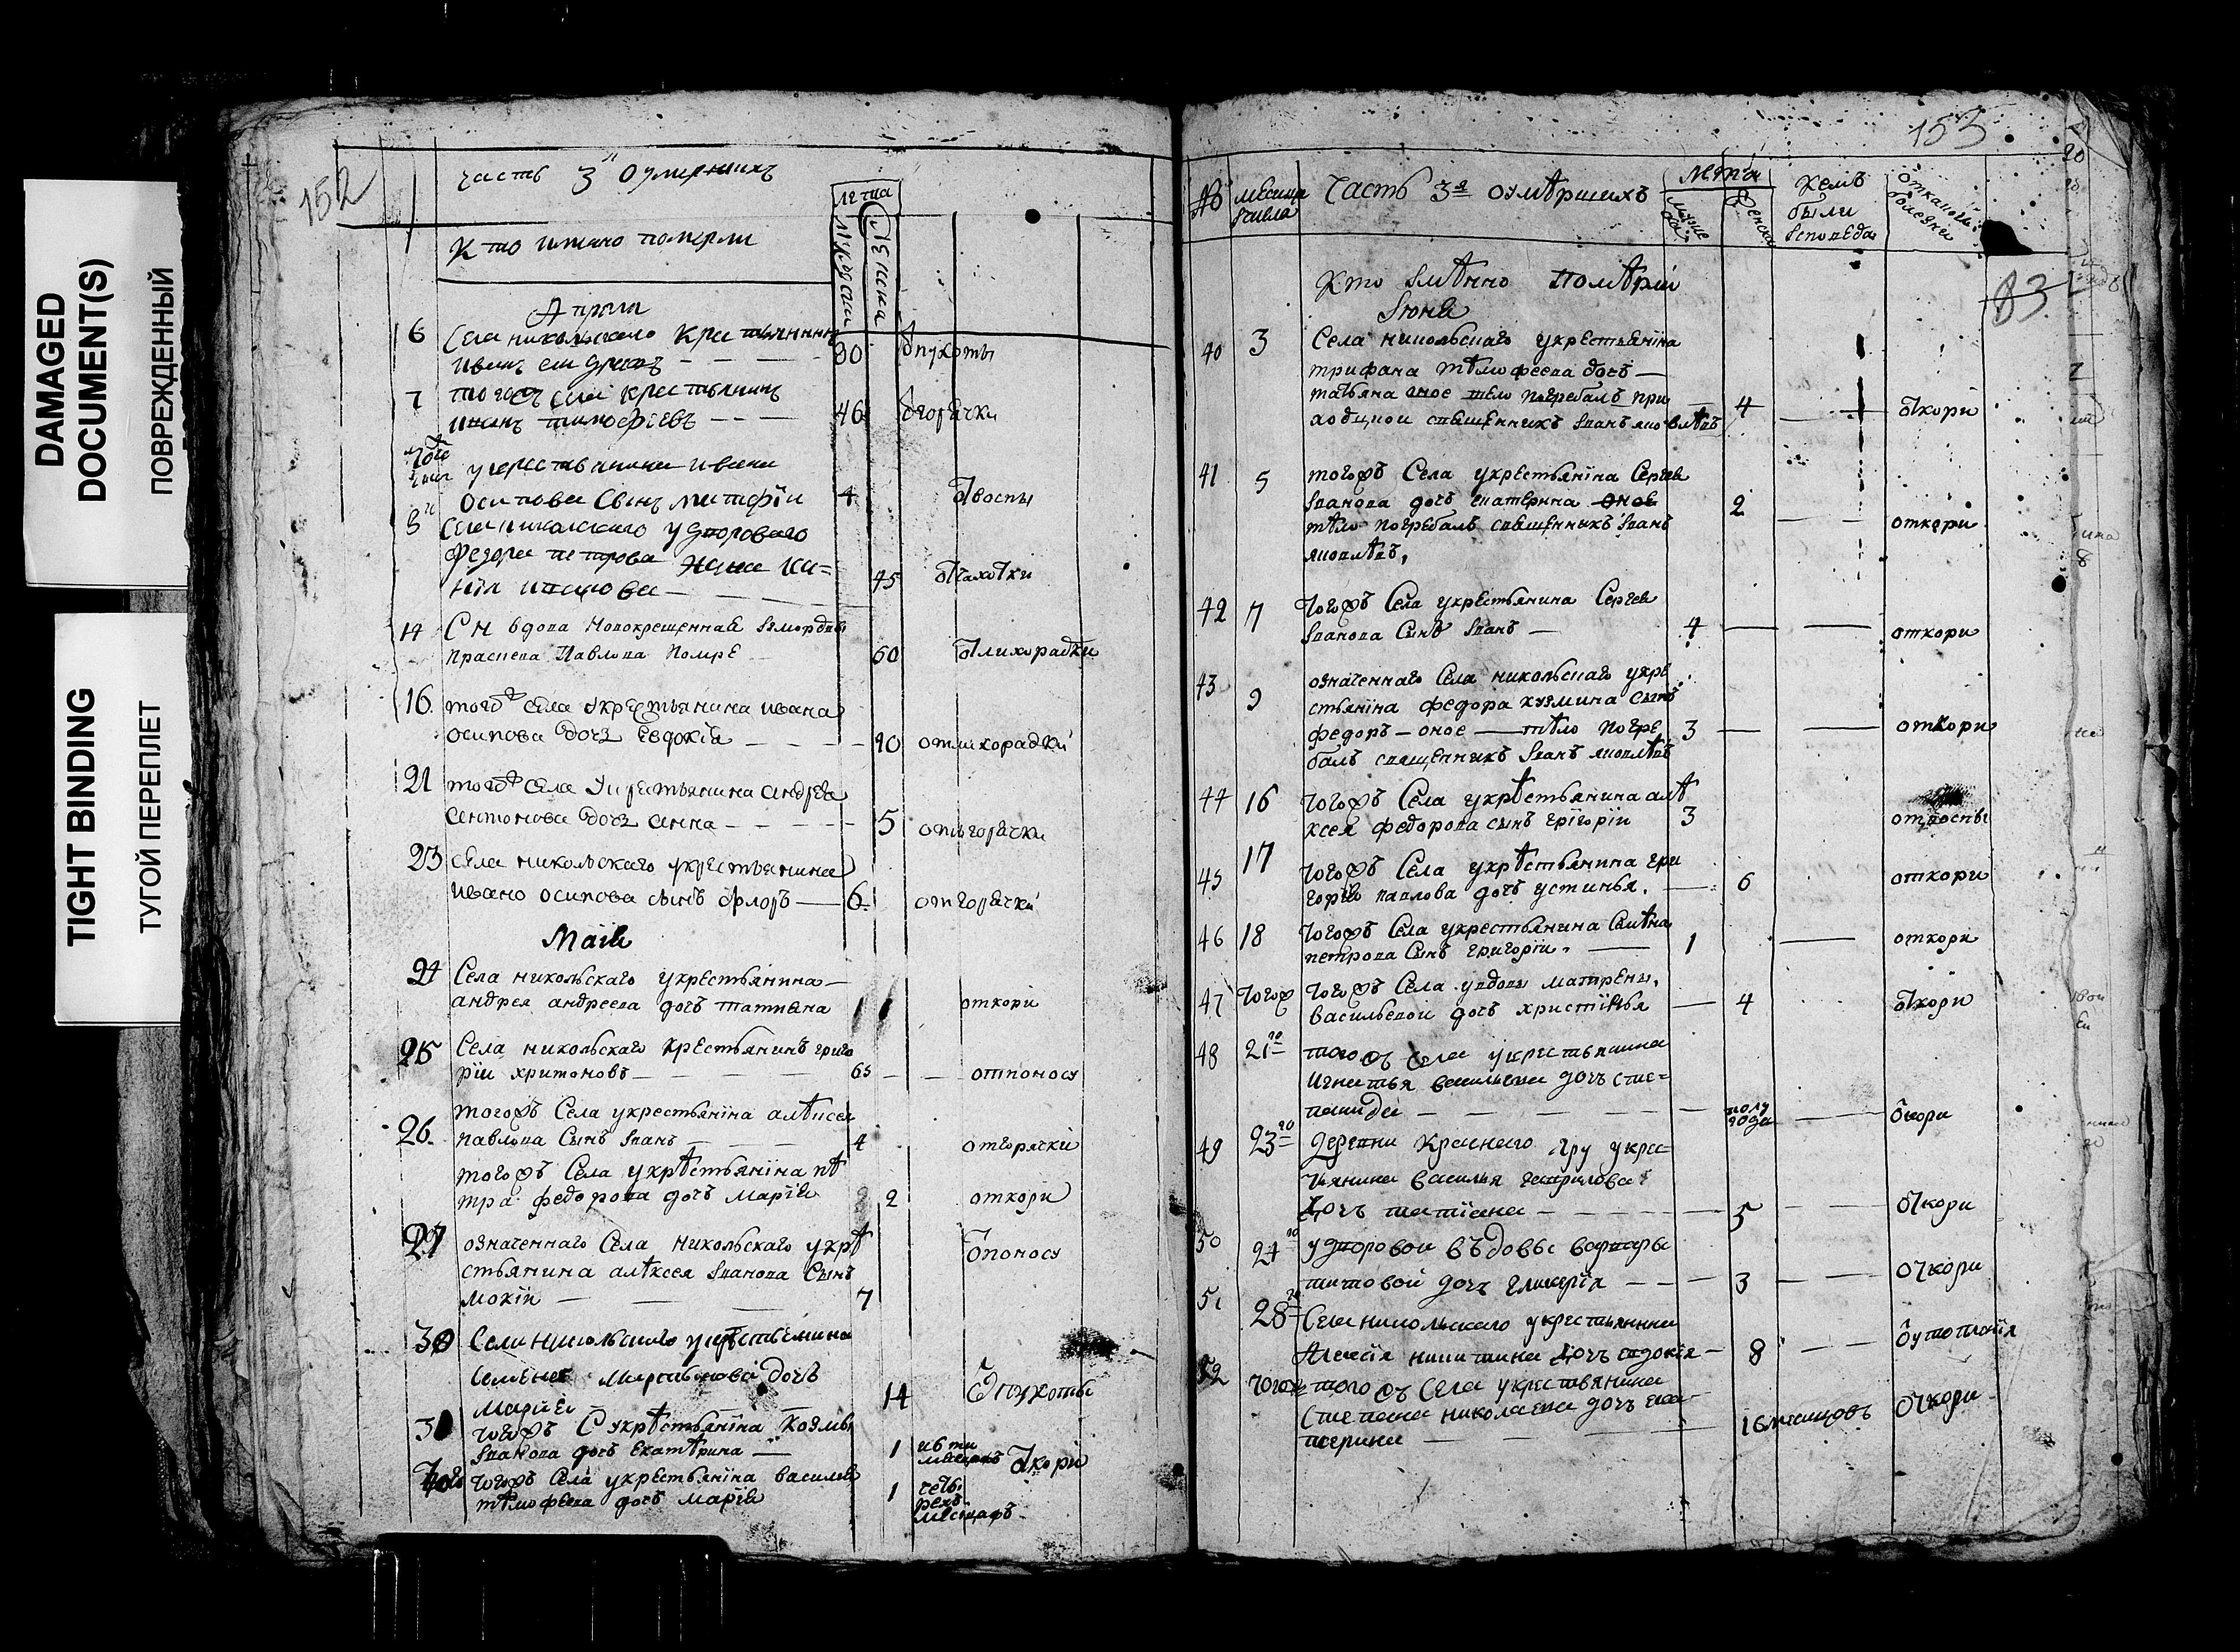 DAMAGED
DOCUMENT(S)
ПОВРЕЖДЕННЫЙ
TIGHT BINDING
ТУГОЙ ПЕРЕПЛЕТ
152
часть 3 я О умершихъ
лета
Кто имяно померли
мужеска
женска
Априля
6 Села никольского крестьянинъ
иванъ 80 ѿ пухоты
7 тогожъ села крестьянинъ
иванъ тимофѣевъ 46 ѿ горячки
у крестьянина ивана
осипова сынъ 4 ѿ воспы
8 села николского у дворового
федора петрова жена ка=
45 ѿ чахотки
14 С Н вдова новокрещенная
Праскева Павлова помре 60 ѿ лихорадки
16 тогожъ села укрестьянина ивана
осипова дочь Евдокіа 10 отлихорадки
21 тогожъ села укрестьянина андрея
антонова дочь анна 5 отьгорячки
23 села никольскаго укрестьянина
ивано осипова сынъ флоръ 6 отгорячки
Маиа
24 Села никольскаго укрестьянина
андрея андреева дочь татиана 1 откори
25 Села никольскаго крестьянинъ григо
рiи харитоновъ 65 отпоносу
тогожъ Села укрестьянiна алѣксея
26 павлова Сынъ iванъ 4 отгорячки
тогожъ Села укрѣстьянiна пѣ
тра федорова дочь марiя 2 откори
27 означеннаго Села никольскаго укрѣ
стьянина алѣксея iванова Сынъ ѿ поносу
мокiи 7
30 Села никольскаго укрѣстьянина
Семена мартынова дочь
мария 14 ѿ пухоты
31 тогожъ С укрѣстьянiна козмы
iванова дочь екатѣрина 1 ѿ кори
тогожъ Села укрестьянiна василья
тѣмофеева дочь марiя 1 четы
рехъ
месецафъ
153
83
№ месяца числа Часть 3я оумѣршихъ лѣта кемъ были исповеданы откакой болезни
мужска женска
Кто iмѣнно помѣрли
Июня
40 3 Села никольскаго укрестьянiна
трифана тѣмофеева дочь
татьяна оное тело погребалъ при 4 ѿ кори
ходцкои священникъ iванъ яковлѣвъ
41 5 тогожъ Села укрестьянiна Сергея
iванова дочь екатерина оное 2
тѣло погребалъ священникъ iванъ откори
яковлѣвъ,
42 7 тогожъ Села укрестьянина Сергея
iванова Сынъ iванъ 4 откори
43 9 означеннаго Села никольскаго укре
стьянiна федора кузмина Сынъ
федоръ оное тѣло погре 3 откори
балъ священникъ iванъ яковлѣвъ
44 16 тогожъ Села укрѣстьянина алѣ
ксея федорова сынъ григорiи 3 отвоспы
45 17 тогожъ Села укрѣстьянина гри
горiя павлова дочь устинья. 6 откори
46 18 тогожъ Села укрестьянина Семѣна
петрова Сынъ григорiи 1 откори
47 тогож тогожъ Села увдовы матрены,
васильевои дочь христiнья 4 ѿ кори
48 21го того жъ села укрестьянина
игнатья васильева дочь сте=
панида полу года ѿ кори
49 23го Деревни Краснаго Яру укрес=
тьянина василья гаврилова
дочь татiана 5 ѿ кори
50 24го удворовой въдовы варвары
титовой дочь гликерiя 3 ѿ кори
51 28го Села никольскаго укрестьянина
Алексiя никитина дочь евдокiя 8 ѿ утопленiя
52 тогож того жъ Села укрестьянина
Степана николаева дочь ека=
терина 16 месяцовъ ѿ кори